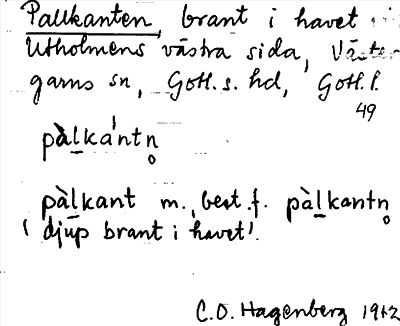 Pallkanten, brant i havet
Utholmens västra sida, Väster-
garns sn, Gotl. s. hd, Gotl. l.
49
pàl̲ka'ntn̥
pàl̲kant m., best. f. pàl̲kantn̥
'djup brant i havet'.
C.O. Hagenberg 1942